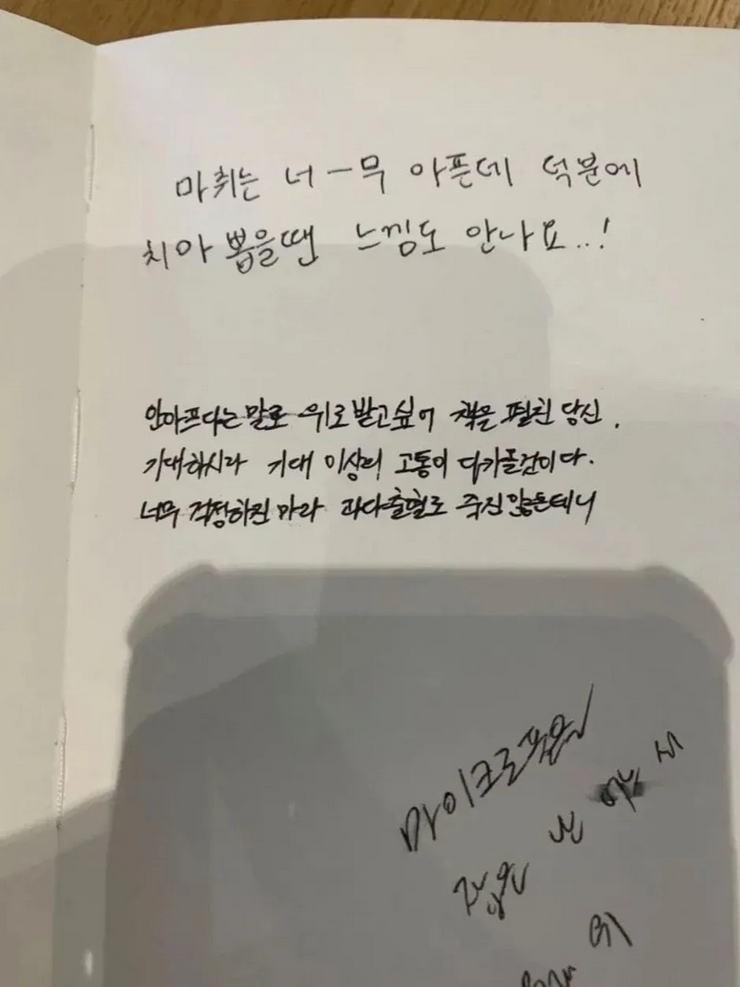 마취는 너ㅡ무 아픈데 덕분에
치아 뽑을땐 느낌도 안나요..!
안아프다는 말로 위로 받고싶어 책을 펼친 당신.
기대하시라 기대 이상의 고통이 다가올것이다.
너무 걱정하진 마라 과다출혈로 죽진 않을테니
마이크로폰을
잡은 난 어느 새